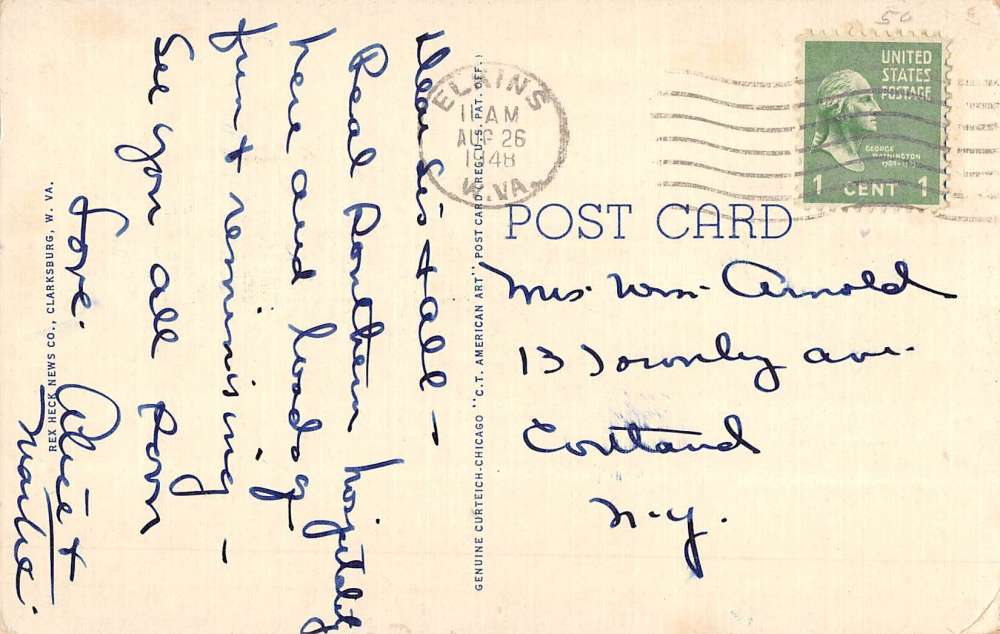 Dear Sis & all -
Real Southern hospitality
here and loads of
fun & reminising -
See you all soon
Love.
Alice &
REX HECK NEWS CO., CLARKSBURG, W. VA.
GENUINE CURTEICH-CHICAGO "C.T. AMERICAN ART" POST CARD (REG. U.S. PAT. OFF.)
ELKINS
11 AM
AUG 26
1948
W. VA.
50
UNITED
STATES
POSTAGE
GEORGE
WASHINGTON
1 CENT 1
POST CARD
Mrs. Wm. Arnold
13 Townley ave.
Cortland
N.Y.